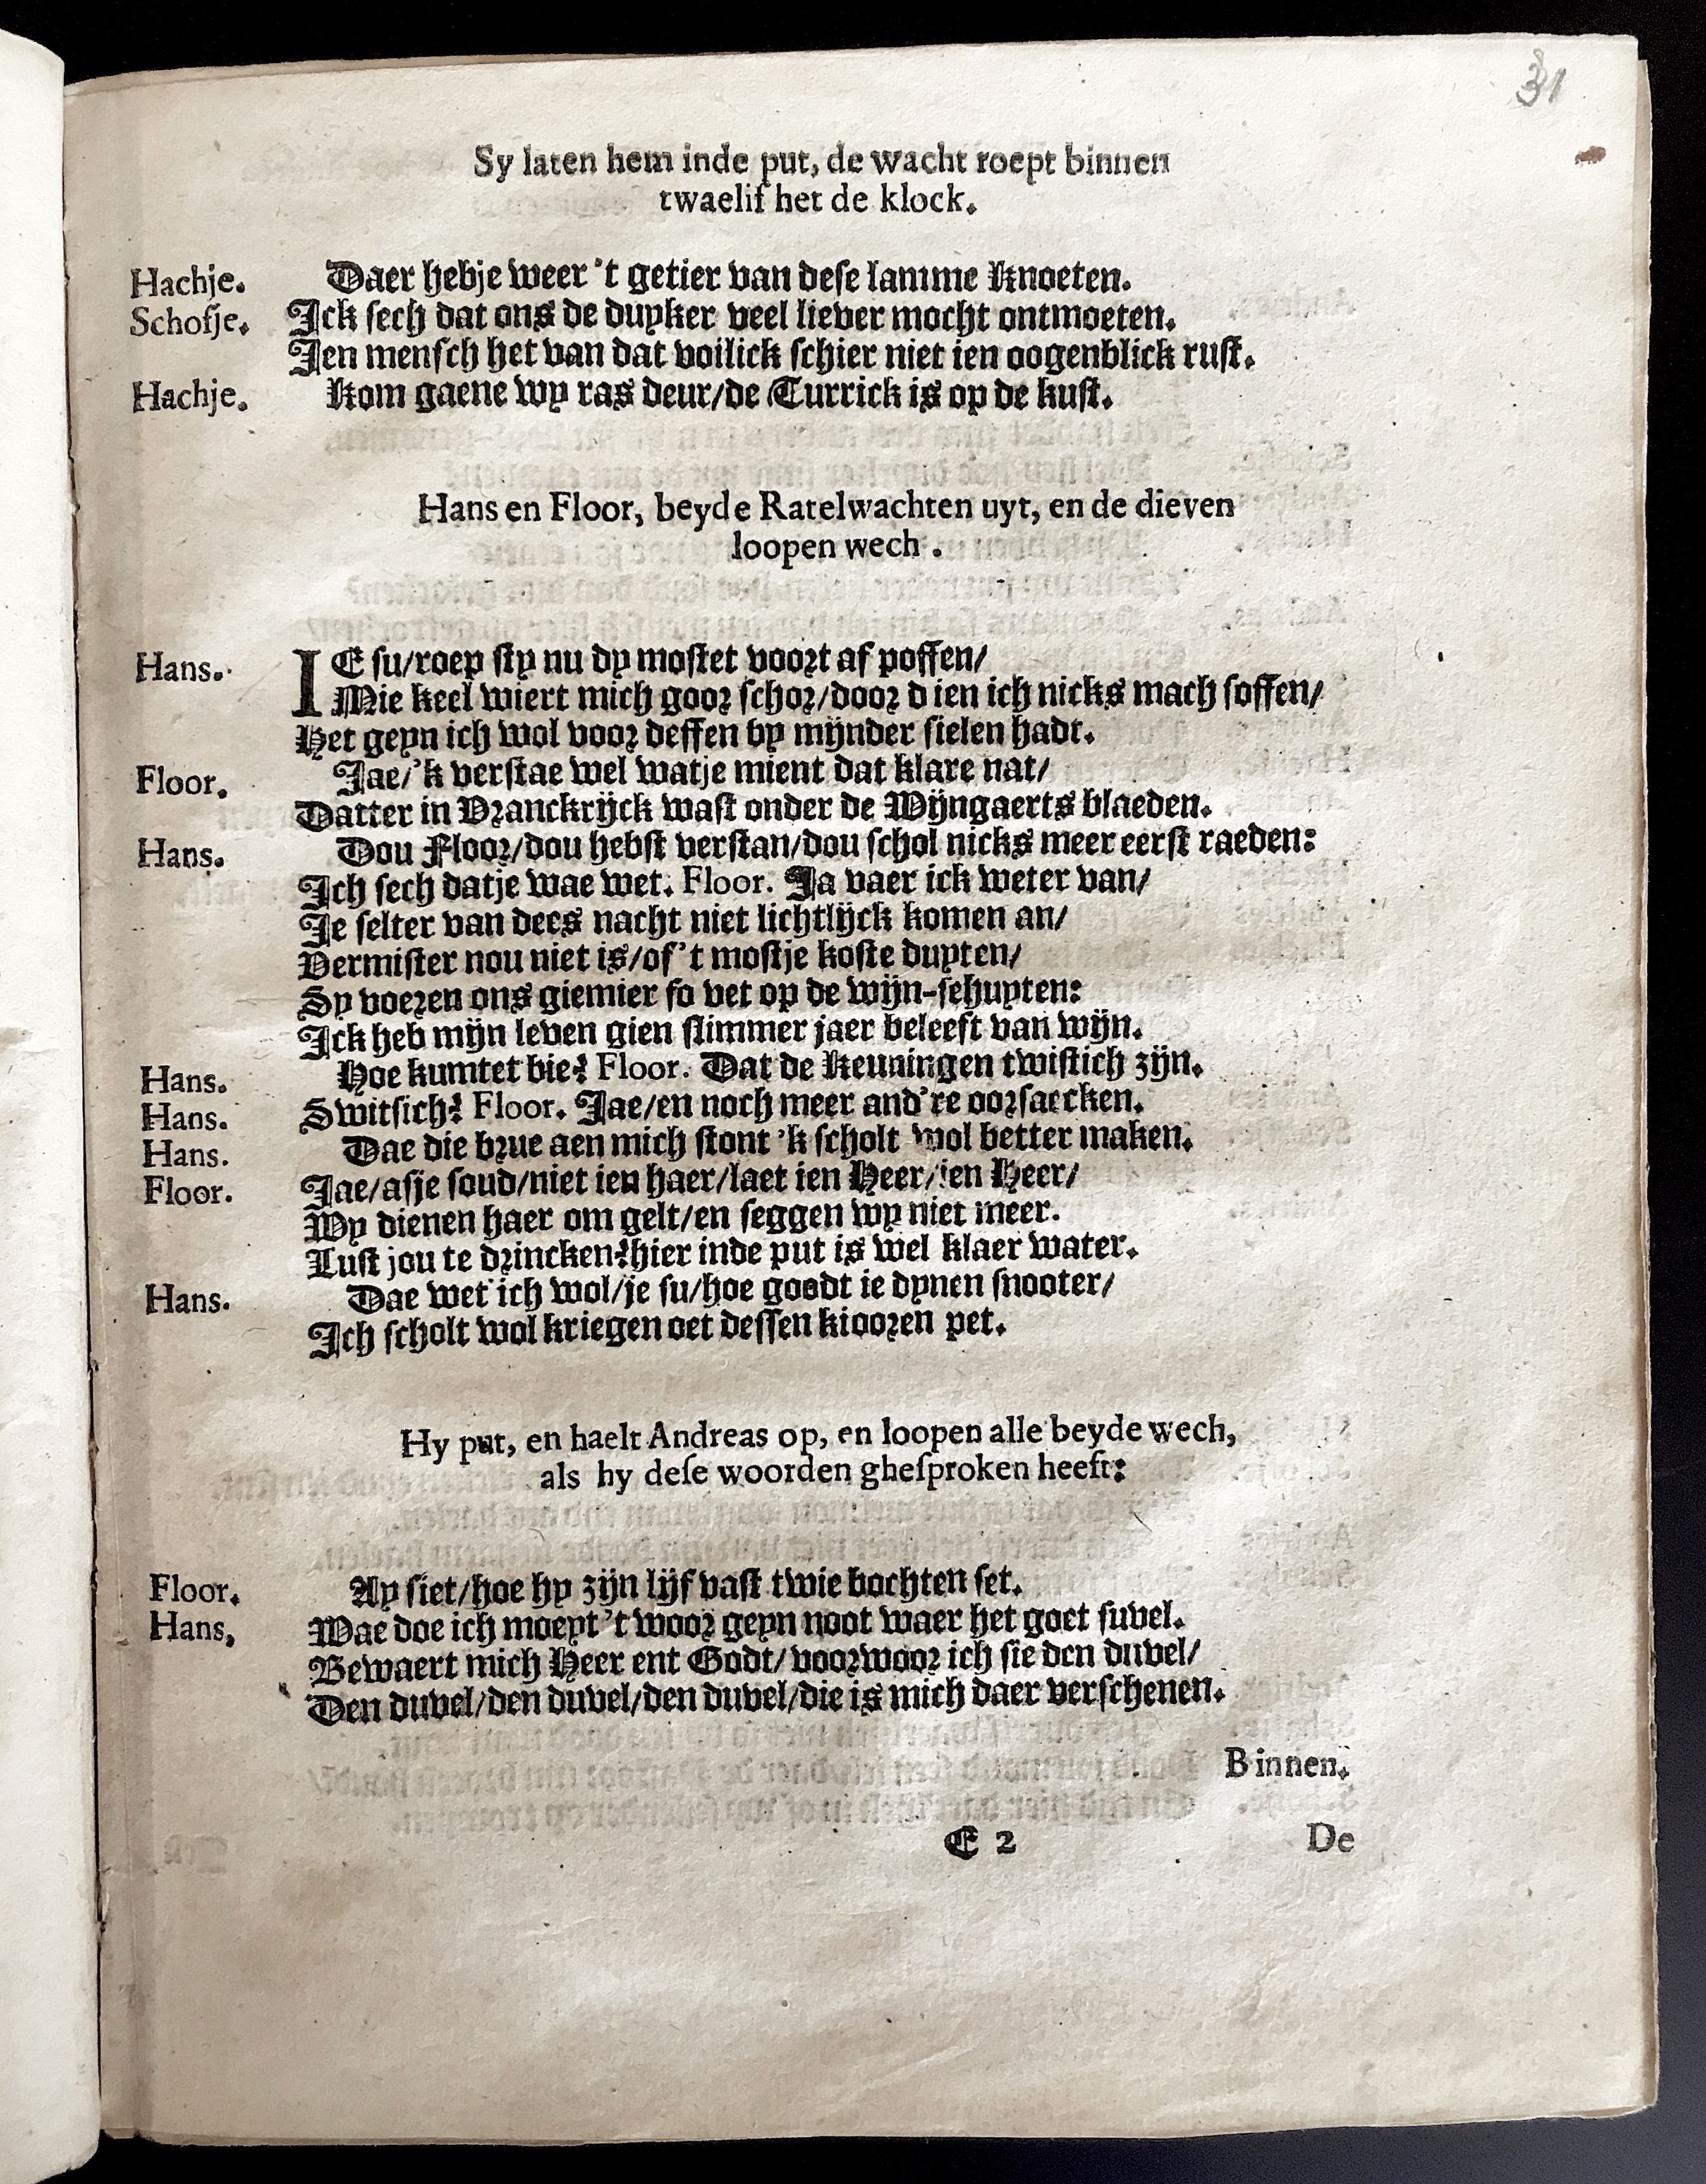 31
Sy laten hem inde put, de wacht roept binnen
twaelif het de klock.
Hachje. Daer hebje weer 't getier van dese lamme Knoeten.
Schofje. Ick sech dat ons de duyker veel liever mocht ontmoeten.
Ien mensch het van dat voilick schier niet ien oogenblick rust.
Hachje. Kom gaene wy ras deur/de Turrick is op de kust.
Hans en Floor, beyde Ratelwachten uyt, en de dieven
loopen wech .
Hans. IE su/roep sty nu dy mostet voort af poffen/
Mie keel wiert mich goor schor/door d ien ich nicks mach soffen/
Het geyn ich wol voor deffen by mijnder sielen hadt.
Floor. Jae/'k verstae wel watje mient dat klare nat/
Datter in Vranckrijck wast onder de Wijngaerts blaeden.
Hans. Dou Floor/dou hebst verstan/dou schol nicks meer eerst raeden:
Ich sech datje wae wet. Floor. Ja vaer ick weter van/
Je selter van dees nacht niet lichtlijck komen an/
Vermister nou niet is/of 't mostje koste duyten/
Sy voeren ons giemier so vet op de wijn-schuyten:
Ick heb mijn leven gien slimmer jaer beleeft van wijn.
Hans. Hoe kumtet bie? Floor. Dat de Keuningen twistich zijn.
Hans. Switsich? Floor. Jae/en noch meer and're oorsaecken.
Hans. Dae die brue aen mich stont 'k scholt wol better maken.
Floor. Jae/asje soud/niet ien haer/laet ien Heer/ien Heer/
Wy dienen haer om gelt/en seggen wy niet meer.
Lust jou te drincken?hier inde put is wel klaer water.
Hans. Dae wet ich wol/je su/hoe goodt ie dynen snooter/
Ich scholt wol kriegen oet dessen kiooren pet.
Hy put, en haelt Andreas op, en loopen alle beyde wech,
als hy dese woorden ghesproken heeft:
Floor. Ay siet/hoe hy zijn lijf vast twie bochten set.
Hans, Wae doe ich moeyt 't woor geyn noot waer het goet suvel.
Bewaert mich Heer ent Godt/ voorwoor ich sie den duvel/
Den duvel/den duvel/den duvel/die is mich daer verschenen.
Binnen.
E 2 De